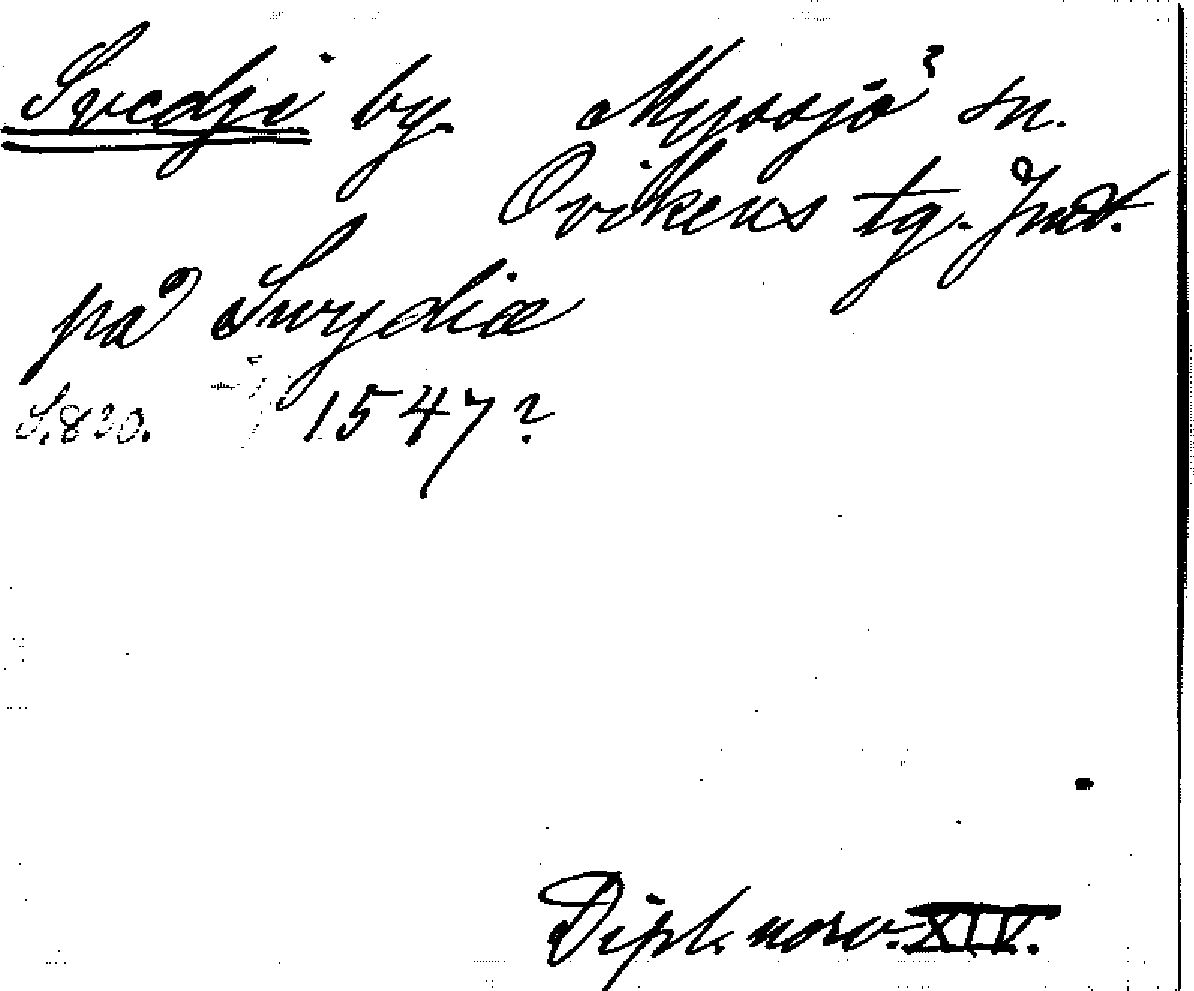 Svedje by. Myssjö sn.
Ovikens tg. Jmt.
på Swydiæ
S. 830. 1547?
Dipl. norv. XIV.